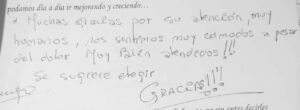 podamos día a día ir mejorando y creciendo...
* Muchas gracias por su atención, muy
humanos, nos sentimos muy comodos a pesar
del dolor Muy Bien atendidos!!!
Se sugiere elegir
GRACIAS!!!